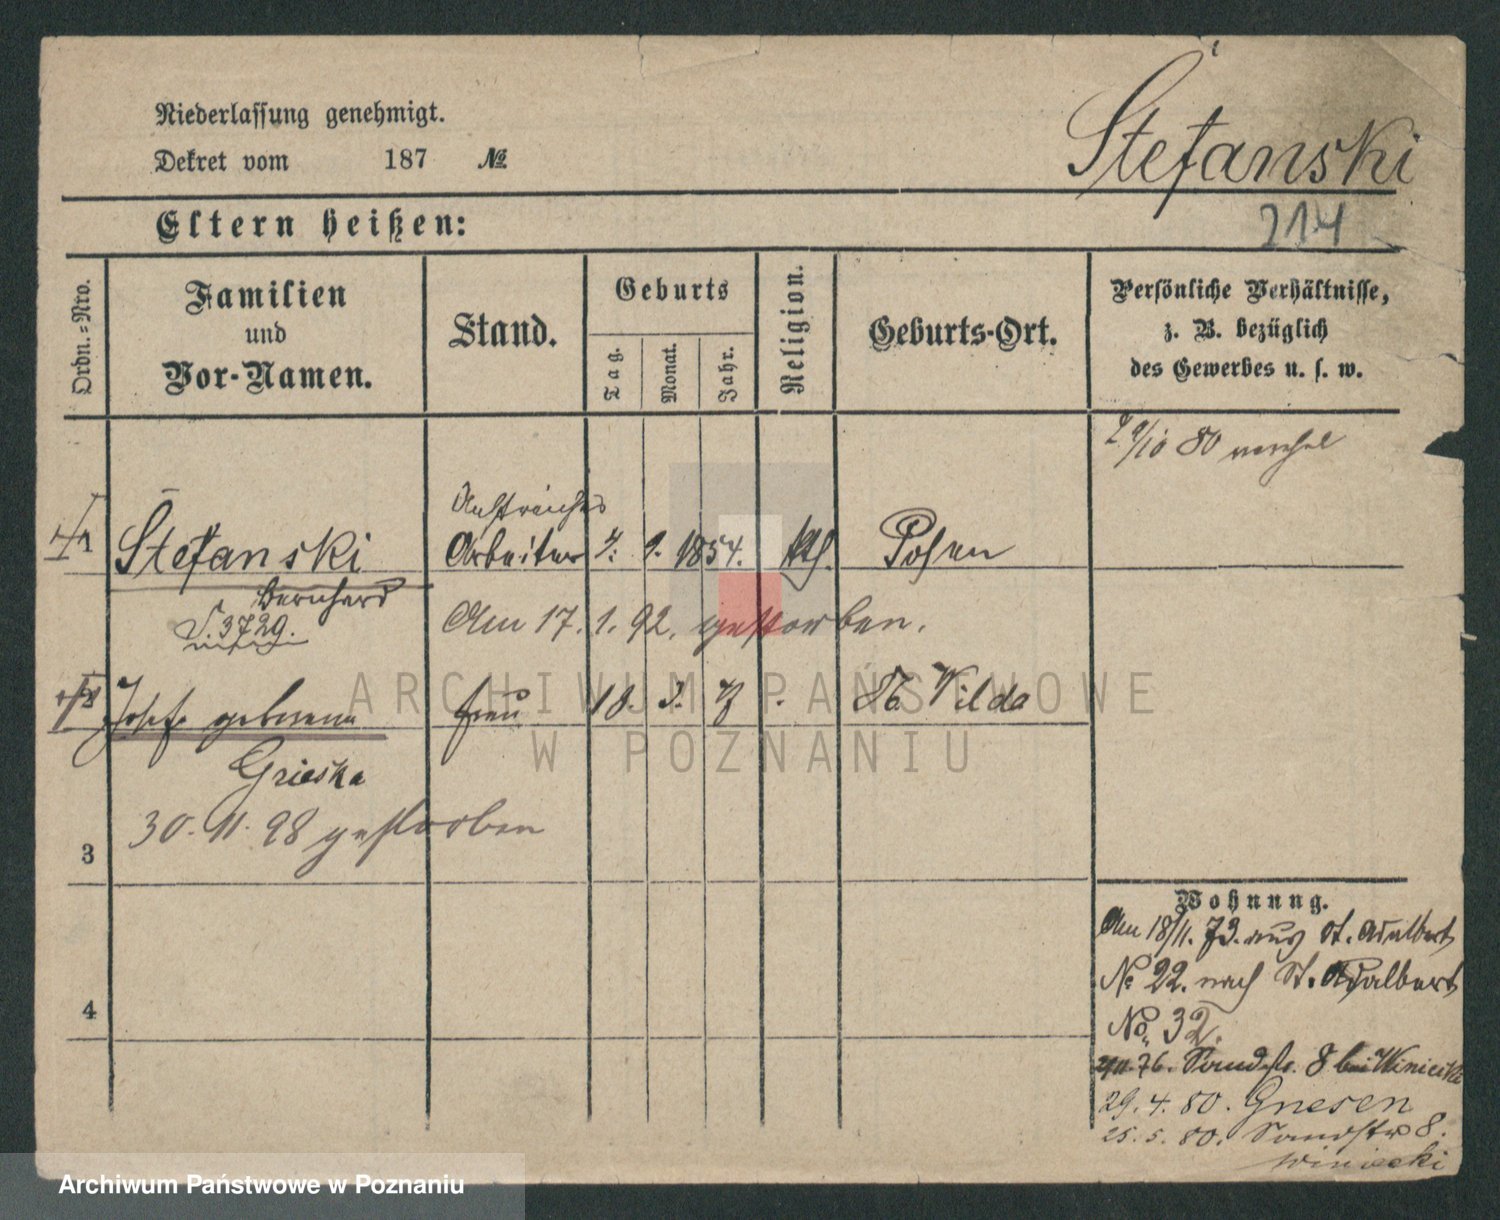 Niederlassung genehmigt.
Dekret vom 187 №
Stefanski
214
Eltern heißen:
Ordn.=Nro.
Familien
und
Vor-Namen.
Stand.
Geburts
Tag.
Monat.
Jahr.
Religion.
Geburts-Ort.
Persönliche Verhältnisse,
z. B. bezüglich
des Gewerbes u. s. w.
/10 80
Anstreicher
1 Stefanski Arbeiter 9. 1854. kth. Posen
Bernhard
V. 3729.
Am 17. 1. 92. gestorben.
2 Josefa geborene Frau 18. 3. St. Vilda
Grieska
30. 11. 98 gestorben
3
4
Wohnung.
Am 18/11. 73. aus St. Adalbert
No 22. nach St. Adalbert
No. 32.
76. Sandstr. 8 bei Winiecki
29. 4. 80. Gnesen
25. 5. 80. Sandstr 8.
Winiecki
ARCHIWUM PAŃSTWOWE
W POZNANIU
Archiwum Państwowe w Poznaniu